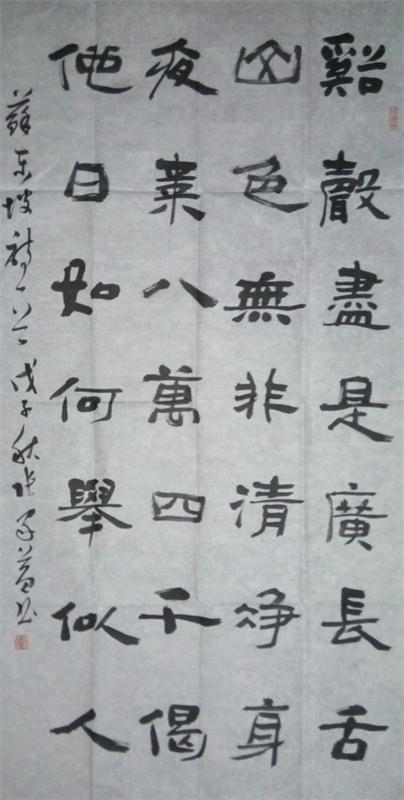 谿聲盡是廣長舌
山色無非清淨身
夜来八萬四千偈
他日如何舉似人
蘇东坡詩一首 戊子秋张书